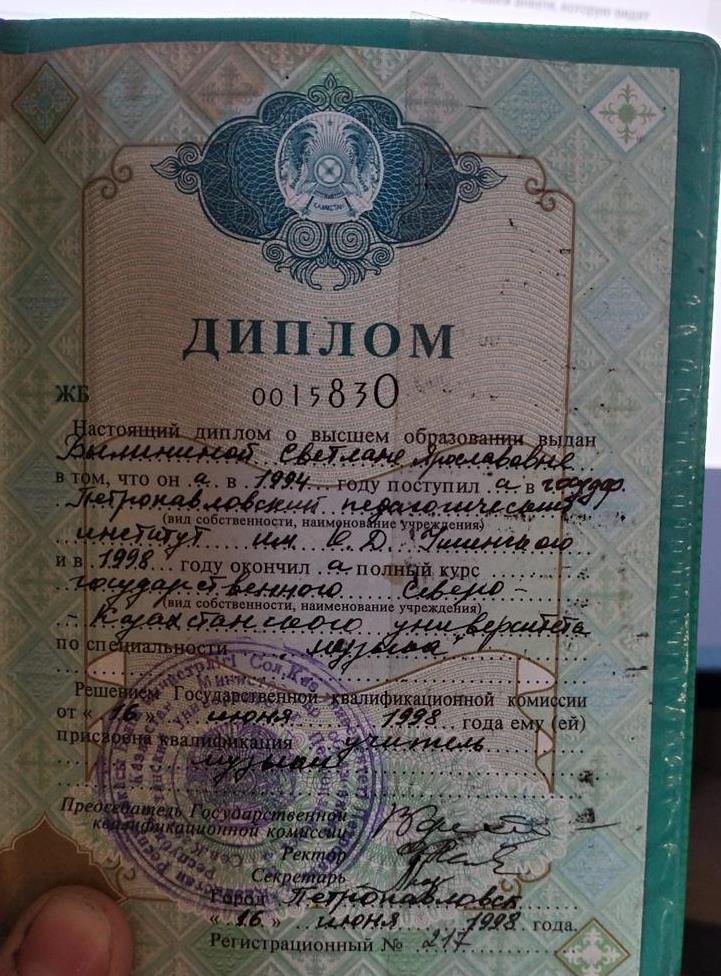 ДИПЛОМ
ЖБ 0015830
Настоящий диплом о высшем образовании выдан
Светлане Ярославовне
в том, что он а в 1994 году поступил а в государ.
Петропавловский педагогический
(вид собственности, наименование учреждения)
институт им. К.Д. Ушинского
и в 1998 году окончил а полный курс
государственного Северо-
(вид собственности, наименование учреждения)
- Казахстанского университета
по специальности "музыка"
Решением Государственной квалификационной комиссии
от « 16 » июня 1998 года ему (ей)
присвоена квалификация учитель
музыки
Председатель Государственной
квалификационной комиссии
Ректор
Секретарь
Город Петропавловск
« 16 » июня 1998 года.
Регистрационный № 217